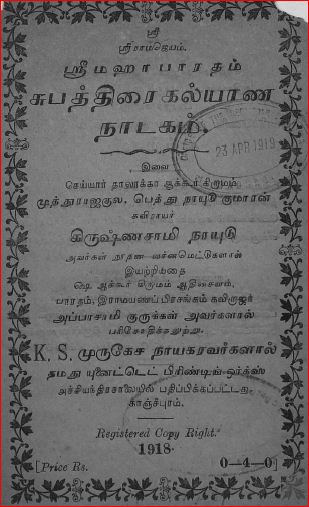 ஸ்ரீ
ஸ்ரீராமஜெயம்.
ஸ்ரீமஹாபாரதம்
சுபத்திரைகல்யாண
நாடகம்.
23 APR 1919
இவை
செய்யார் தாலூக்கா ஆக்கூர் கிறாமம்
முத்துராஜகுல. பெத்து நாயுடு குமாரன்
கவிராயர்
கிருஷ்ணசாமி நாயுடு
அவர்கள் நூதன வர்னமெட்டுகளால்
இயற்றியதை
ஷெ ஆக்கூர் கிறாமம் ஆதிசைவம்,
பாரதம், இராமாயணப் பிரசங்கம் கவிஞர்
அப்பாசாமி குருக்கள் அவர்களால்
பரிசோதிக்கலுற்று.
K. S. முருகேச நாயகரவர்களால்
தமது யுனைட்டெட் பிரிண்டிங் ஒர்க்ஸ்
அச்சியந்திரசாலையில் பதிப்பிக்கப்பட்டது.
காஞ்சீபுரம்.
Registered Copy Right.
1918.
[Price Rs. 0—4—0]